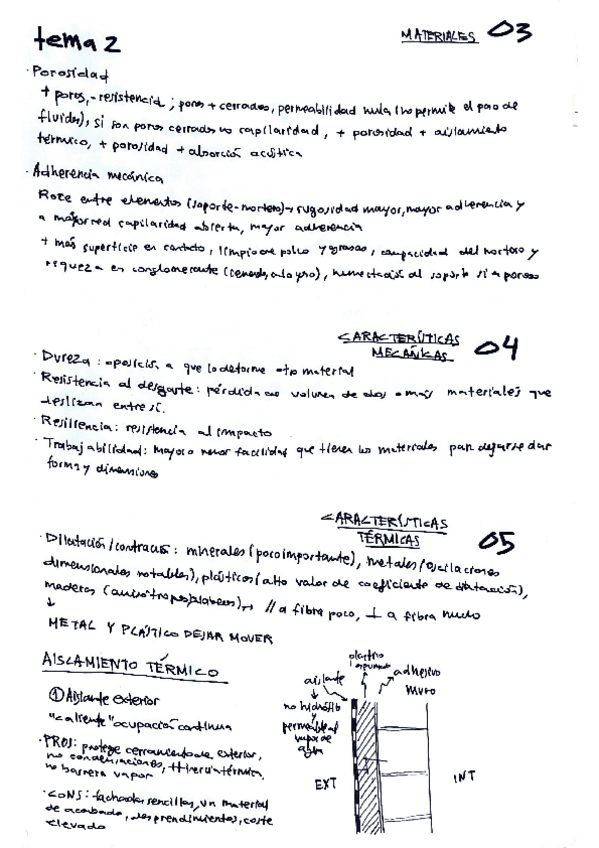 tema 2
MATERIALES 03
· Porosidad
+ poros, - resistencia; poros + cerrados, permeabilidad nula (no permite el paso de
fluidos), si son poros cerrados no capilaridad, + porosidad + aislamiento
térmico, + porosidad + absorción acústica
· Adherencia mecánica
Roce entre elementos (soporte-mortero) → rugosidad mayor, mayor adherencia y
a mayor red capilaridad abierta, mayor adherencia
+ más superficie en contacto, limpio de polvo y grasas, compacidad del mortero y
riqueza en conglomerante (cemento, cal o yeso), humectación del soporte si es poroso
CARACTERÍSTICAS
MECÁNICAS 04
· Dureza: oposición a que lo deforme otro material
· Resistencia al desgaste: pérdida de volumen de dos o más materiales que
deslizan entre sí.
· Resiliencia: resistencia al impacto
· Trabajabilidad: mayor o menor facilidad que tienen los materiales para dejarse dar
forma y dimensiones
CARACTERÍSTICAS
TÉRMICAS 05
· Dilatación/contracción: minerales (poco importante), metales (oscilaciones
dimensionales notables), plásticos (alto valor de coeficiente de dilatación),
maderas (anisótropos/alabeos) → // a fibra poco, ⊥ a fibra mucho
↓
METAL Y PLÁSTICO DEJAR MOVER
AISLAMIENTO TÉRMICO
① Aislante exterior
"caliente" ocupación continua
· PROS: protege cerramiento de exterior,
no condensaciones, ++ inercia térmica,
no barrera vapor
· CONS: fachadas sencillas, un material
de acabado, desprendimientos, coste
elevado
plástico
espumado
aislante
adhesivo
muro
no hidrófilo
y
permeable al
vapor de
agua
EXT
INT